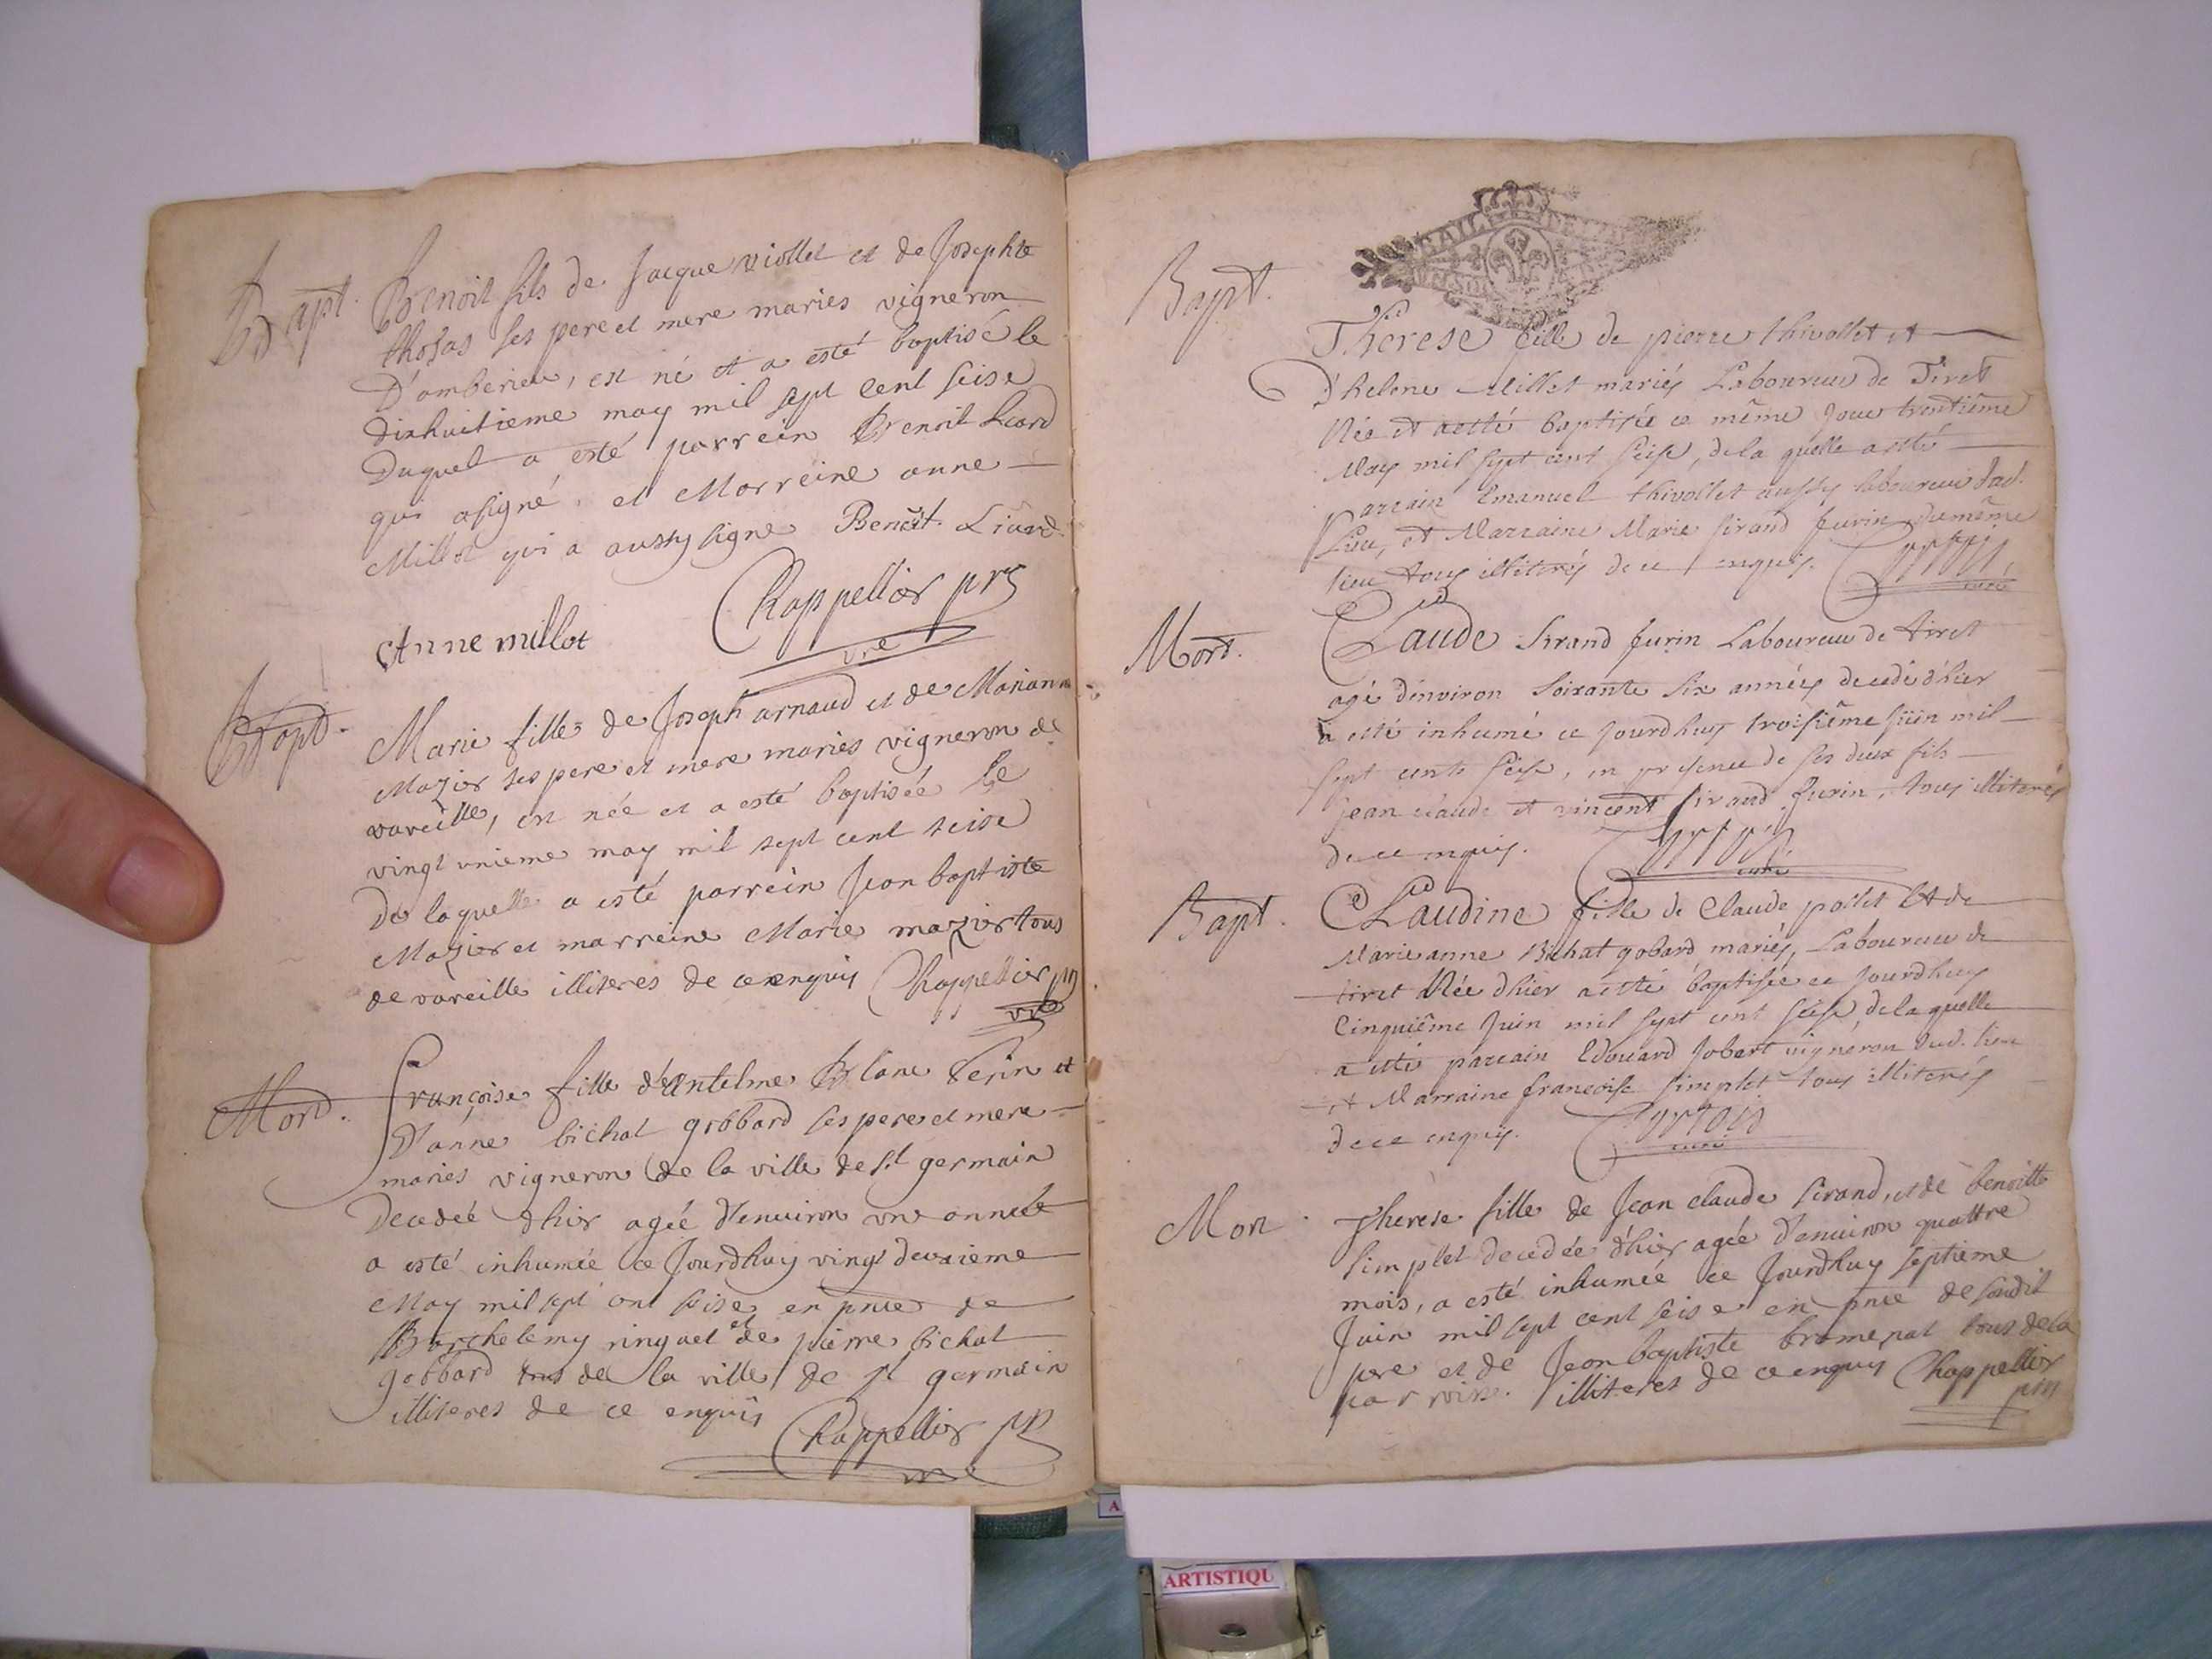 Bapt. Benoit fils de Jacque viollet et de Josephte
thosas ses pere et mere mariés vigneron
D'amberieu, est né et a esté baptisé le
dixhuitieme may mil sept cent seise
duquel a esté parrein Benoit Liard
qui a signé et Marreine anne
Millot qui a aussy signe Benoit Liard
Chappellier
Anne millot
vre
Bapt. Marie fille de Joseph arnaud et de Mariann
Mazier ses pere et mere mariés vigneron de
vareille, est née et a esté baptisée le
vingt unieme may mil sept cent seise
de laquelle a esté parrein Jean baptiste
Mazier et marreine Marie mazier tous
de vareille illiteres de ce enquis Chappellier
vre
Mort. françoise fille d'Antelme Blanc Perin et
D'anne bichat gobbard ses pere et mere
mariés vigneron de la ville de st germain
Decedeé d'hier ageé d'enuiron une anneé
a esté inhumeé ce Jourdhuy vingt deuxieme
May mil sept cent seise en pnce de
Barthelemy ringuet et de pierre bichat
gobbard tous de la ville de st germain
illiteres de ce enquis
Chappellier
vre
Bapt.
Therese fille de pierre thivollet et
D'helene Millet mariés Laboureur de Tiret
Née et a esté baptisée ce même Jour trentiême
May mil sept cent seise, de la quelle a esté
parrain Emanuel thivollet aussy laboureur dud.
Lieu, et Marraine Marie sirand furin du même
lieu tous illiterés de ce enquis.
curé
Mort. Claude Sirand furin Laboureur de tiret
agé d'environ soixante six années decedé d'hier
a esté inhumé ce Jourdhuy troisiême Juin mil
sept cents seise, en presence de ses deux fils
Jean claude et vincent sirand furin, tous illiterés
de ce enquis.
curé
Bapt. Claudine fille de Claude pollet Et de
Marieanne Bichat gobard mariés, Laboureur de
tiret Née d'hier a esté baptisée ce Jourdhuy
Cinquiême Juin mil sept cent seise, de la quelle
a esté parrain Edouard Jobert vigneron dud. lieu
et Marraine francoise simplet tous illiterés
de ce enquis.
curé
Mort Therese fille de Jean claude sirand, et de benoitte
simplet decedée d'hier ageé d'enuiron quattre
mois, a esté inhumeé ce Jourdhuy septieme
Juin mil sept cent seise en pnce de sondit
pere et de Jean baptiste bromenat tous de la
parroisse. illiteres de ce enquis Chappellier
ARTISTIQU